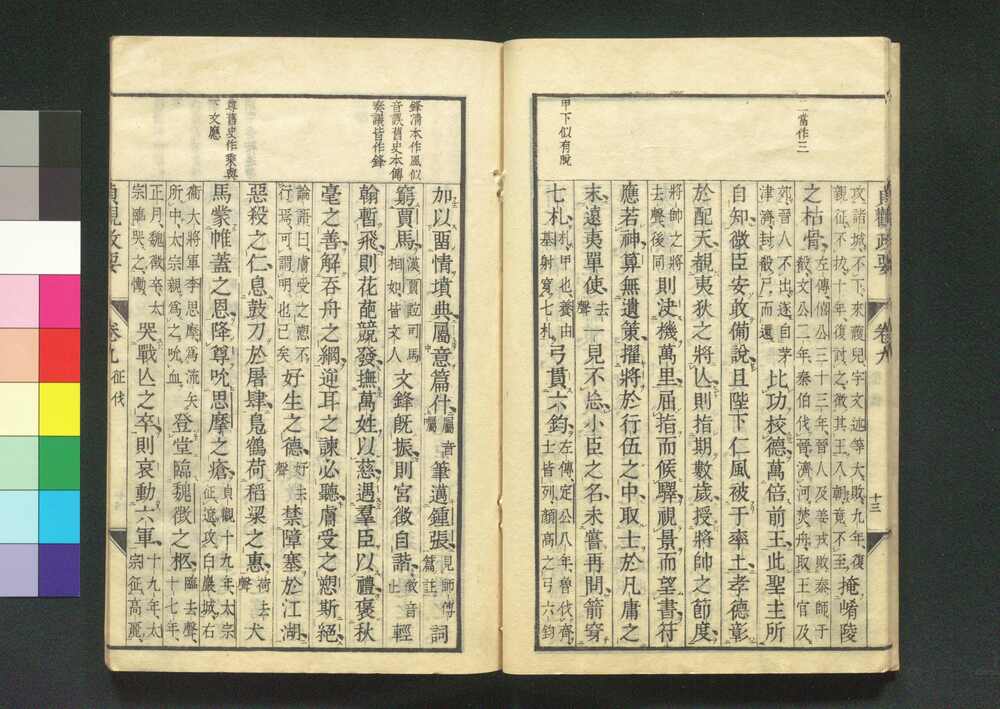 貞觀政要
卷九
十三
二當作三
甲下似有脫
攻諸城不下來護兒宇文述等大敗九年復
親征不拔十年復討之徵其王入朝竟不至
掩崤陵
之枯骨
左傳僖公三十三年晉人及姜戎敗秦師于
殽文公二年秦伯伐晉濟河焚舟取王官及
郊晉人不出遂自茅
津濟封殽尸而還
比功校德萬倍前王此聖主所
自知微臣安敢備說且陛下仁風被于率土孝德彰
於配天覩夷狄之將亾則指期數歲授將帥之節度
將帥之將
去聲後同
則決機萬里屈指而候驛視景而望書符
應若神算無遺策擢將於行伍之中取士於凡庸之
末遠夷單使
去
聲
一見不忘小臣之名未嘗再問箭穿
七札
札甲也養由
基射穿七札
弓貫六鈞
左傳定公八年魯伐齊
士皆列顏高之弓六鈞
鋒清本作風似
音誤舊史本傳
奏議皆作鋒
尊舊史作乘輿
下文應
加以留情墳典屬意篇什
屬
音
筆邁鍾張
見師傅
篇註
詞
窮賈馬
漢賈誼司馬
相如皆文人
文鋒旣振則宮徵自諧
徵音
止
輕
翰暫飛則花葩競發撫萬姓以慈遇羣臣以禮褒秋
毫之善解吞舟之網逆耳之諫必聽膚受之愬斯絕
論語曰膚受之愬不
行焉可謂明也已矣
好生之德
好去
聲
禁障塞於江湖
惡殺之仁息鼓刀於屠肆鳧鶴荷稻粱之惠
荷去
聲
犬
馬蒙帷蓋之恩降尊吮思摩之瘡
貞觀十九年太宗
征遼攻白巖城右
衞大將軍李思摩爲流矢
所中太宗親爲之吮血
登堂臨魏徵之柩
臨去聲
十七年
正月魏徵卒太
宗臨哭之慟
哭戰亾之卒則哀動六軍
十九年太
宗征高麗
貞觀政要
卷九
征伐